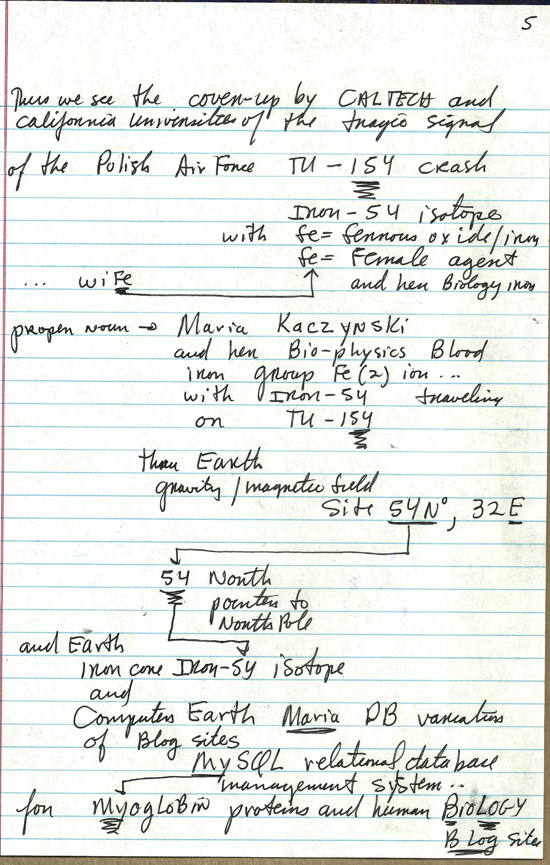 5
Thus we see the cover-up by CALTECH and
california universities of the tragic signal
of the Polish Air Force TU-154 crash
Iron-54 isotope
with fe= ferrous oxide/iron
fe= Female agent
... wife and her Biology iron
proper noun → Maria Kaczynski
and her Bio-physics Blood
iron group Fe(2) ion...
with Iron-54 traveling
on TU-154
thru Earth
gravity/magnetic field
Site 54N°, 32E
54 North
pointers to
North Pole
and Earth
iron core Iron-54 isotope
and
Computers Earth Maria DB variation
of Blog sites
MySQL relational database
management system..
for MyogloBin proteins and human BioLOGY
B Log sites